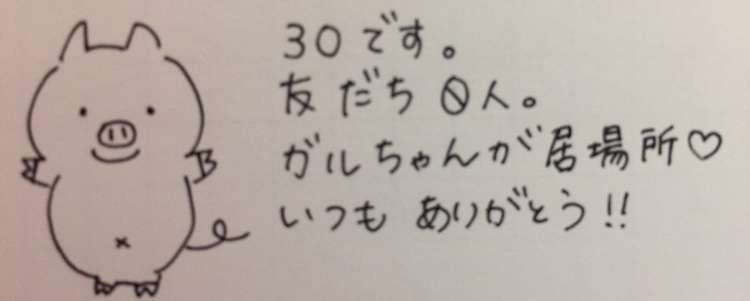 30です。
友だち0人。
ガルちゃんが居場所♡
いつも ありがとう!!